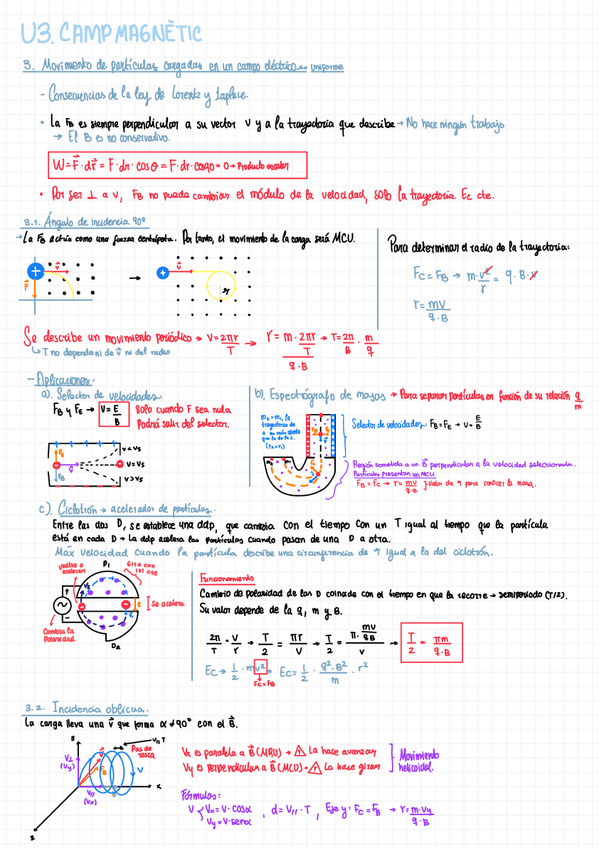 U3. CAMP MAGNÈTIC
3. Movimiento de partículas cargadas en un campo eléctrico → uniforme
- Consecuencias de la ley de Lorentz y Laplace.
• La FB es siempre perpendicular a su vector v y a la trayectoria que describe → No hace ningún trabajo
→ El B es no conservativo.
W = F · dr = F · dr · cosθ = F · dr · cos90 = 0 → Producto escalar
• Por ser ⊥ a v, FB no puede cambiar el módulo de la velocidad, solo la trayectoria. Ec cte.
3.1. Ángulo de incidencia 90°
→ La FB actúa como una fuerza centrípeta. Por tanto, el movimiento de la carga será MCU.
Para determinar el radio de la trayectoria:
+ v F → + v r
Fc = FB → m · v²/r = q · B · v
r = mv/q·B
Se describe un movimiento periódico → v = 2πr/T → r = m · 2πr/T / q·B → T = 2π/B · m/q
↳ T no depende ni de v ni del radio
- Aplicaciones:
a). Selector de velocidades
FB y FE → v = E/B Solo cuando F sea nula
Podrá salir del selector.
v<vs
v=vs
v>vs
b). Espectrógrafo de masas → Para separar partículas en función de su relación q/m
m2 > m1, la
trayectoria de
(r2>r1)
Selector de velocidades: FB = FE → v = E/B
Región sometida a un B perpendicular a la velocidad seleccionada.
Partículas presentan un MCU
FB = Fc → r = mv/qB } Valor de r para conocer la masa.
c). Ciclotrón → acelerador de partículas.
Entre las dos D, se establece una ddp, que cambia con el tiempo con un T igual al tiempo que la partícula
está en cada D → La ddp acelera las partículas cuando pasan de una D a otra.
Máx velocidad cuando la partícula describe una circunferencia de r igual a la del ciclotrón.
vuelve a
acelerar
D1
Gira con
Se acelera
Cambia la
Polaridad
D2
Funcionamiento
Cambio de polaridad de las D coincide con el tiempo en que la recorre → semiperiodo (T/2).
Su valor depende de la q, m y B.
2π/T = v/r → T/2 = πr/v → T/2 = π · mv/qB / v → T/2 = πm/q·B
Ec → 1/2 · mv² → Ec = 1/2 · q²·B²/m · r²
Fc = FB
3.2. Incidencia oblicua.
La carga lleva una v que forma α ≠ 90° con el B.
v⊥ (vy)
v// T
Paso de
rosca
v// (vx)
x
z
Vx es paralela a B (MRU) → ⚠ La hace avanzar
Vy es perpendicular a B (MCU) → ⚠ La hace girar
Movimiento
helicoidal.
Fórmulas:
v { Vx = v · cosα , d = v// · T , Eje y: Fc = FB → r = m·vy/q·B
Vy = v · senα